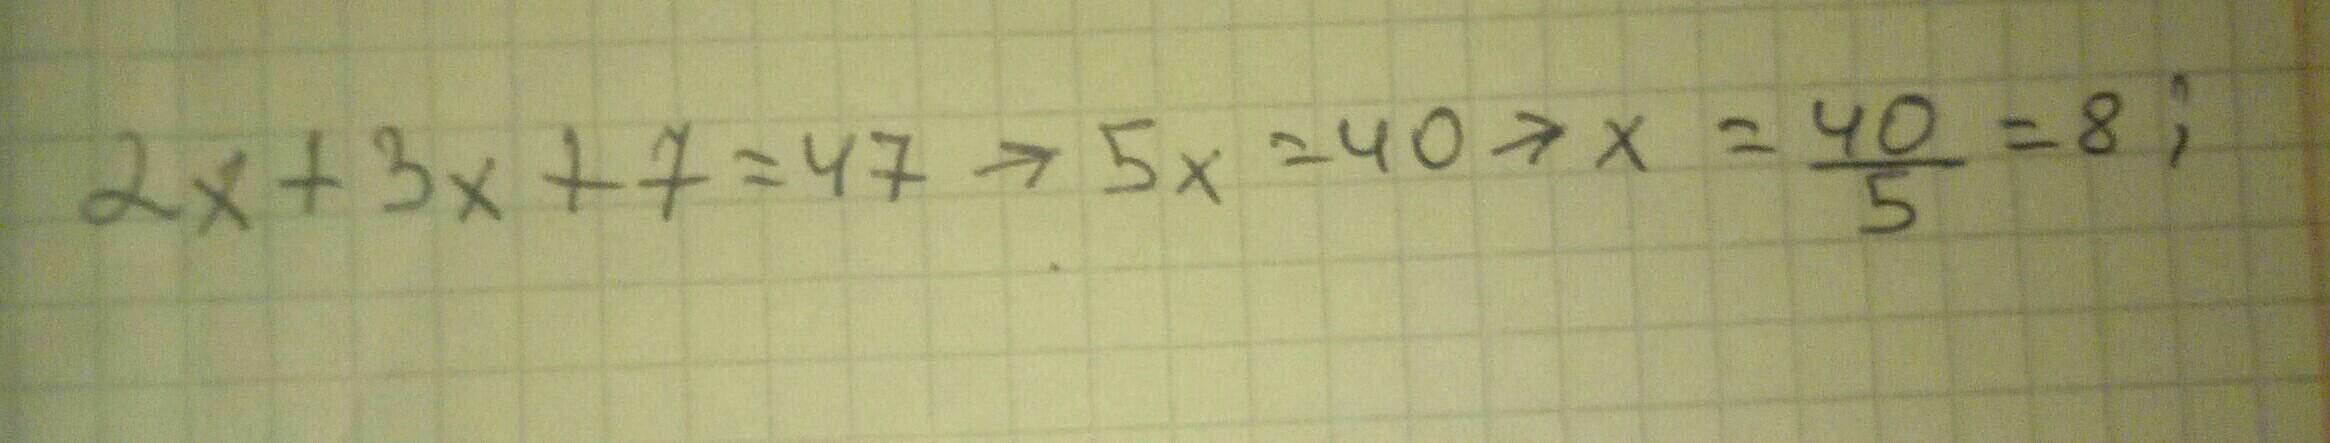 2x+3x+7=47 → 5x=40 → x = 40/5 = 8;